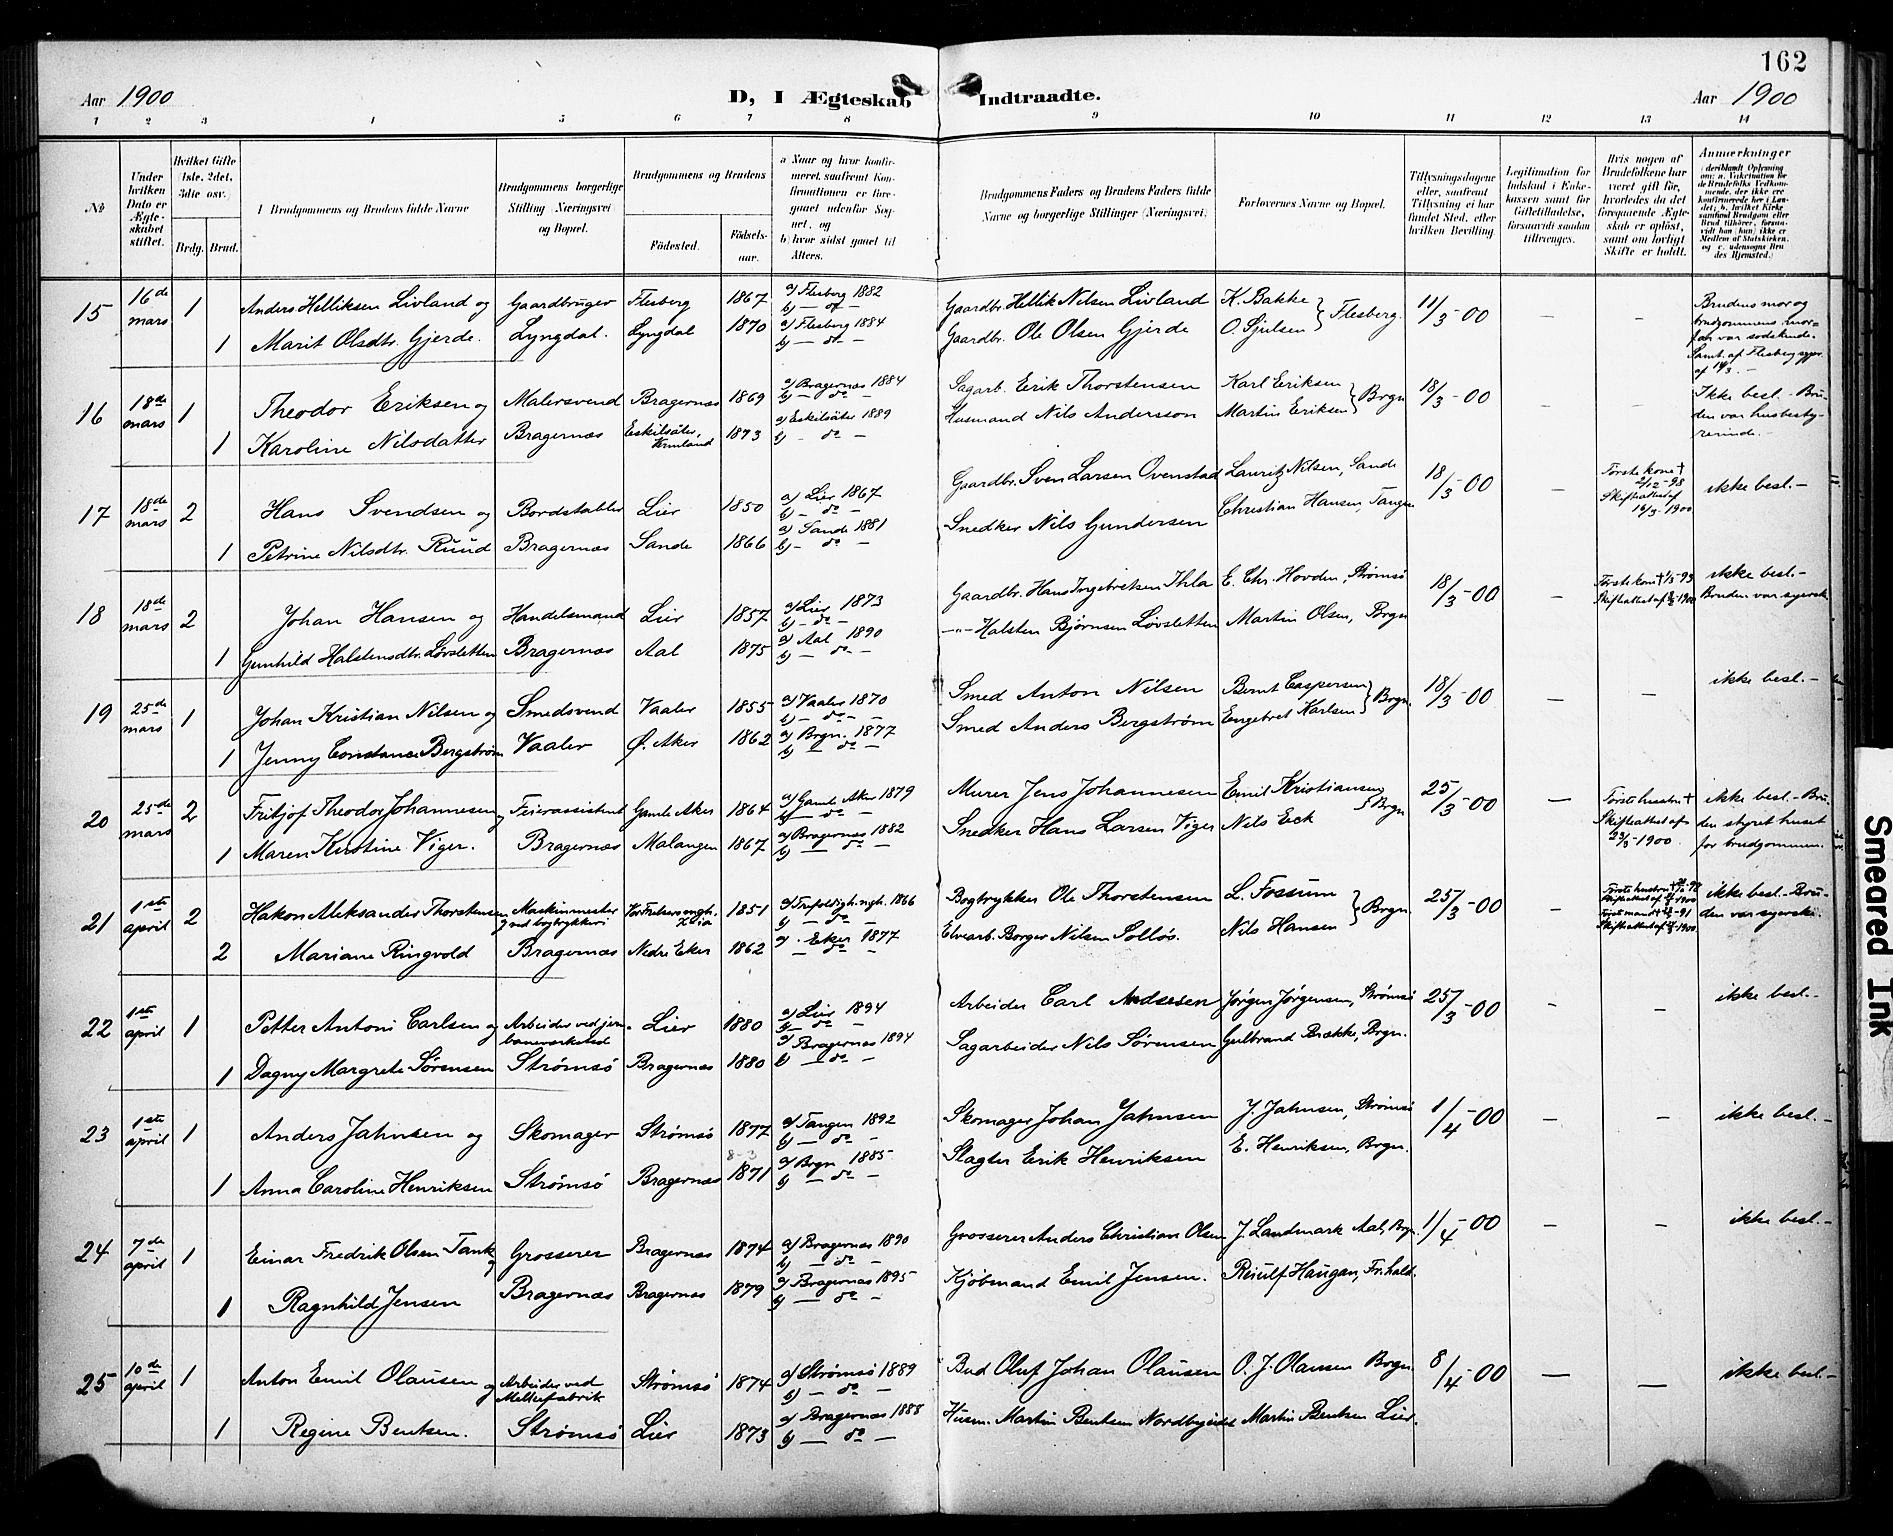 162
Aar 1900 D, I Ægteskab Indtraadte. Aar 1900
1 2 3 4 5 6 7 8 9 10 11 12 13 14
No
Under hvilken Dato er Ægteskabet stiftet.
Hvilket Gifte (1ste, 2det, 3die osv.)
Brdg. Brud.
Brudgommens og Brudens fulde Navne
Brudgommens borgerlige Stilling (Næringsvei) og Bopæl.
Brudgommens og Brudens
Födested. Födselsaar.
a Naar og hvor konfirmeret, saafremt Konfirmationen er foregaaet udenfor Sognet, og
b) hvor sidst gaaet til Alters.
Brudgommens Faders og Brudens Faders fulde Navne og borgerlige Stillinger (Næringsvei)
Forlovernes Navne og Bopæl.
Tillysningsdagene eller, saafremt Tillysning ei har fundet Sted, efter hvilken Bevilling.
Legitimation for Indskud i Enkekassen samt for Giftetilladelse, forsaavidt saadan tiltrænges.
Hvis nogen af Brudefolkene har været gift før, hvorledes da det foregaaende Ægteskab er opløst, samt om lovligt Skifte er holdt.
Anmærkninger
15 16de mars 1 Anders Helliksen Livland og Gaardbruger Flesberg 1867 a) Flesberg 1882 b) — do — Gaardbr. Hellik Nilsen Livland K. Bakke } Flesberg. 11/3-00 — — Brudens mor og brudgommens morfar var sødskende. Samt. af Flesberg sgpr. af 14/3. —
1 Marit Olsdtr. Gjerde. Lyngdal. Lyngdal 1870 a) Flesberg 1884 b) — do — Gaardbr. Ole Olsen Gjerde O. Sjulsen
16 18de mars 1 Theodor Eriksen og Malersvend Bragernæs 1869 a) Bragernæs 1884 b) — do — Sagarb. Erik Thorstensen Karl Eriksen } Brgn 18/3-00 — — Ikke besl. — Bruden var husbestyrerinde. —
1 Karoline Nilsdatter Bragernæs Eskilsäter, Vermland 1873 a) Eskilsäter 1889 b) - do — Husmand Nils Andersson Martin Eriksen
17 18de mars 2 Hans Svendsen og Bordstabler Lier 1850 a) Lier 1867 b) — do — Gaardbr. Sven Larsen Ovenstad Lauritz Nilsen, Sande 18/3-00 — Første kone † 2/12-98 Skifteattest af 16/3-1900 ikke besl. —
1 Petrine Nilsdtr. Ruud Bragernæs Sande 1866 a) Sande 1881 b) - do — Snedker Nils Gundersen Christian Hansen Tangen
18 18de mars 2 Johan Hansen og Handelsmand Lier 1857 a) Lier 1873 b) — do — Gaardbr. Hans Ingebretsen Ihla E. Chr. Hovden, Strømsø 18/3-00 — ikke besl. — Bruden var syerske
1 Gunhild Halstensdtr. Løvsletten Bragernæs Aal 1875 a) Aal 1890 b) — do — —"— Halsten Bjørnsen Løvsletten Martin Olsen, Brgn
19 25de mars 1 Johan Kristian Nilsen og Smedsvend Vaaler 1855 a) Vaaler 1870 b) — do — Smed Anton Nilsen Bernt Caspersen } Brgn. 18/3-00 — — ikke besl. —
1 Jenny Constance Bergstrøm Vaaler Ø. Aker 1862 a) Brgn. 1877 b) — do — Smed Anders Bergstrøm Engebret Karlsen
20 25de mars 2 Fritjof Theodor Johannesen og Feierassistent Gamle Aker 1864 a) Gamle Aker 1879 b) — do — Murer Jens Johannesen Emil Kristiansen } Brgn 25/3-00 — Første hustru † Skifteattest af 23/3-1900. ikke besl. — Bruden styret huset for brudgommen.
1 Maren Kristine Viger. Bragernæs Malangen 1867 a) Bragernæs 1882 b) — do — Snedker Hans Larsen Viger Nils Eck
21 1ste april 2 Hakon Aleksander Thorstensen Maskinmester ved bogtrykkeri Vor Frelsers mgh. Xania 1851 a) Trefoldigh. mgh. 1866 b) — do — Bogtrykker Ole Thorstensen L. Fossum } Brgn. 25/3-00 — ikke besl. — Bruden var syerske.
2 Mariane Ringvold Bragernæs Nedre Eker 1862 a) Eker 1877 — do — Elvearb. Borger Nilsen Solløs. Nils Hansen
22 1ste april 1 Petter Antoni Carlsen og Arbeider ved jernbaneverksted Lier 1880 a) Lier 1894 b) — do — Arbeider Carl Andresen Jørgen Jørgensen, Strømsø 25/3-00 — — ikke besl. —
1 Dagny Margrete Sørensen Strømsø Bragernæs 1880 a) Bragernæs 1894 b) — do — Sagarbeider Nils Sørensen Gulbrand Brække, Brgn.
23 1ste april 1 Anders Jahnsen og Skomager Strømsø 1877 a) Tangen 1892 b) — do — Skomager Johan Jahnsen J. Jahnsen, Strømsø 1/4-00 — — ikke besl. —
8-3
1 Anna Caroline Henriksen Strømsø Bragernæs 1871 a) Brgn 1885 b) — do — Slagter Erik Henriksen E. Henriksen, Brgn.
24 7de april 1 Einar Fredrik Olsen Tank og Grosserer Bragernæs 1874 a) Bragernæs 1890 b) — do — Grosserer Anders Christian Olsen J. Landmark Aal, Brgn 1/4-00 — — ikke besl. —
1 Ragnhild Jensen Bragernæs Bragernæs 1879 a) Bragernæs 1895 b) — do — Kjøbmand Emil Jensen. Riulf Haugan, Fr.hald.
25 10de april 1 Anton Emil Olausen og Arbeider ved Melkefabrik Strømsø 1874 a) Strømsø 1889 b) — do — Bud Oluf Johan Olausen O. J. Olausen Brgn. 8/4-00 — — ikke besl. —
1 Regine Bentsen. Strømsø Lier 1873 a) Bragernæs 1888 b) — do — Husm. Martin Bentsen Nordbyeidet Martin Bentsen Lier.
Smeared Ink